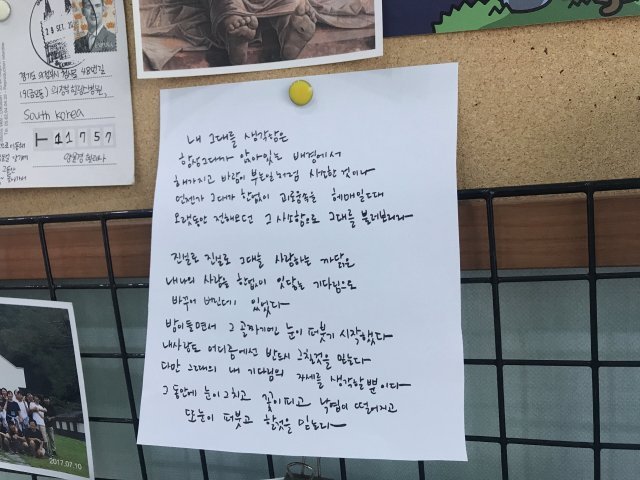 28 SEP. 20
경기도 의정부시 천보로 48번길
South Korea
11757
내 그대를 생각함은
항상그대가 앉아있는 배경에서
해가지고 바람이 부는일처럼 사소한 것이나
언젠가 그대가 한없이 괴로움속을 헤메일때
오랫동안 전해오던 그 사소함으로 그대를 불러보리라
진실로 진실로 그대를 사랑하는 까닭은
내나의 사랑을 한없이 잇닿는 기다림으로
바꾸어 버린데 있었다
밤이들면서 그 골짜기엔 눈이 퍼붓기 시작했다
내사랑도 어디쯤에선 반드시 그칠것을 믿는다
다만 그때의 내 기다림의 자세를 생각할뿐이다
그 동안에 눈이 그치고 꽃이피고 낙엽이 떨어지고
또눈이 퍼붓고 할것을 믿는다
2017.07.10